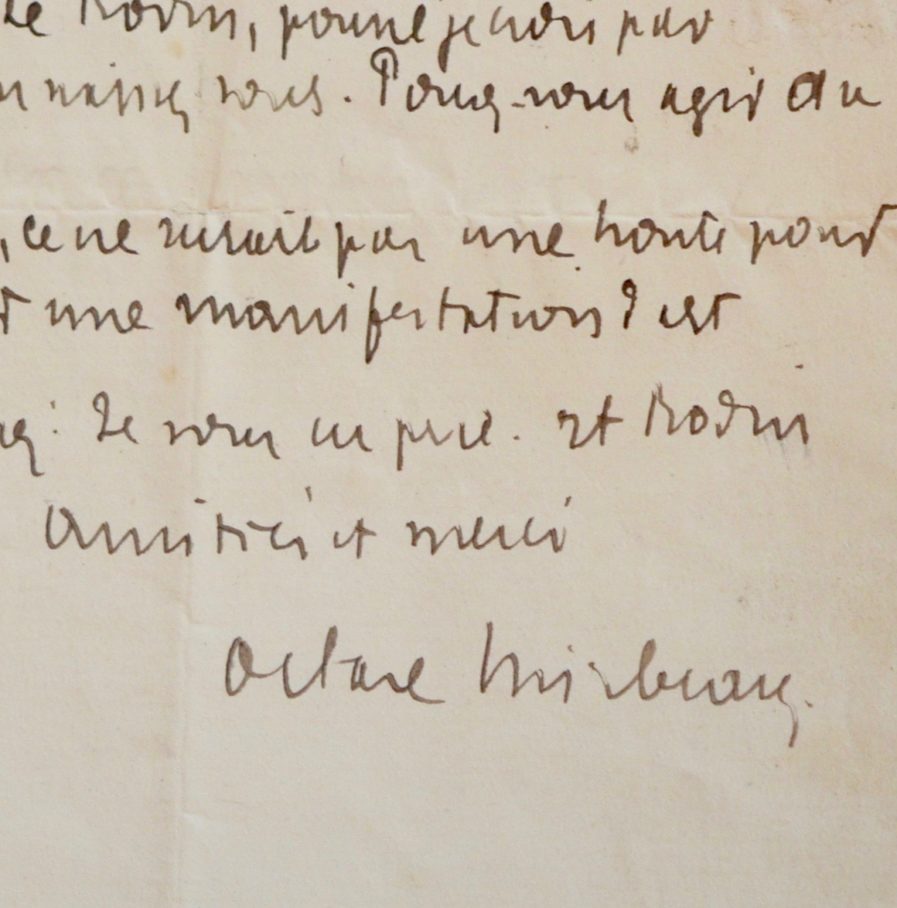 de Rodin, pour le jeudi par
connaissez vous. Pouvez-vous agir au
, ce ne serait pas une honte pour
une manifestation d'art
Je vous en prie. et Rodin
Amitiés et merci
Octave Mirbeau.